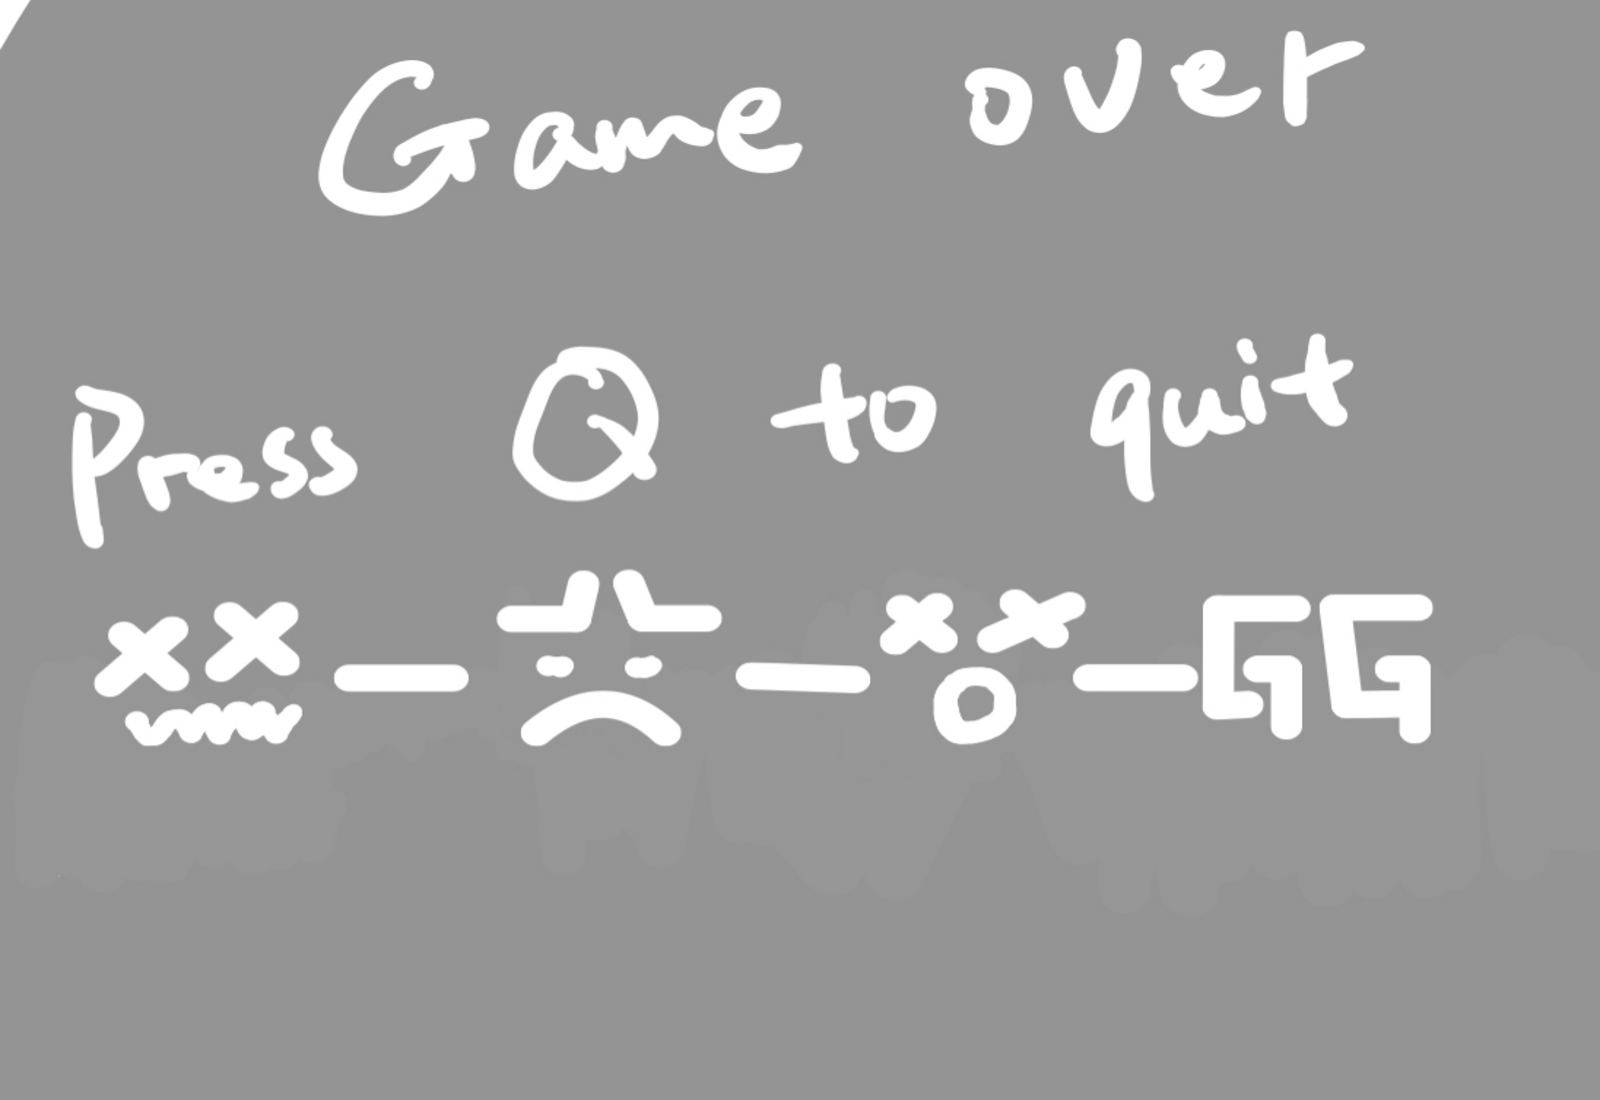 Game over
Press Q to quit
GG